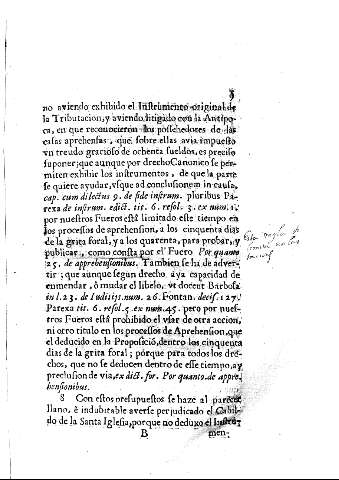 9
no aviendo exhibido el Instrumento original de
la Tributacion, y aviendo litigado con la Antipo-
ca, en que reconocieron los possehedores de las
casas aprehensas, que sobre ellas avia impuesto
vn treudo gratioso de ochenta sueldos, es preciso
suponer; que aunque por drecho Canonico se per-
miten exhibir los instrumentos, de que la parte
se quiere ayudar, vsque ad conclusionem in causa,
cap. cum dilectus 9. de fide instrum. pluribus Pa-
rexa de instrum. edict. tit. 6. resol. 3. ex num. 1.
por nuestros Fueros està limitado este tiempo en
los procesos de aprehension, a los cinquenta dias
de la grita foral, y a los quarenta, para probar, y
publicar, como consta por el Fuero Por quanto
25. de apprehensionibus. Tambien se ha de adver-
tir; que aunque según drecho aya capacidad de
enmendar, ò mudar el libelo, vt docent Barbosa
in l. 23. de Iuditijs num. 26. Fontan. decis. 127.
Parexa tit. 6. resol. 3. ex num. 45. pero por nues-
tros Fueros està prohibido el vsar de otra accion,
ni otro titulo en los procesos de Aprehension, que
el deducido en la Proposiciò, dentro los cinquenta
dias de la grita foral; porque para todos los dre-
chos, que no se deducen dentro de esse tiempo, ay
preclusion de via, ex dict. for. Por quanto. de appre-
hensionibus.
8 Con estos presupuestos se haze al parecer
llano, è indubitable averse perjudicado el Cabil-
do de la Santa Iglesia, porque no deduxo el Instru-
B men-